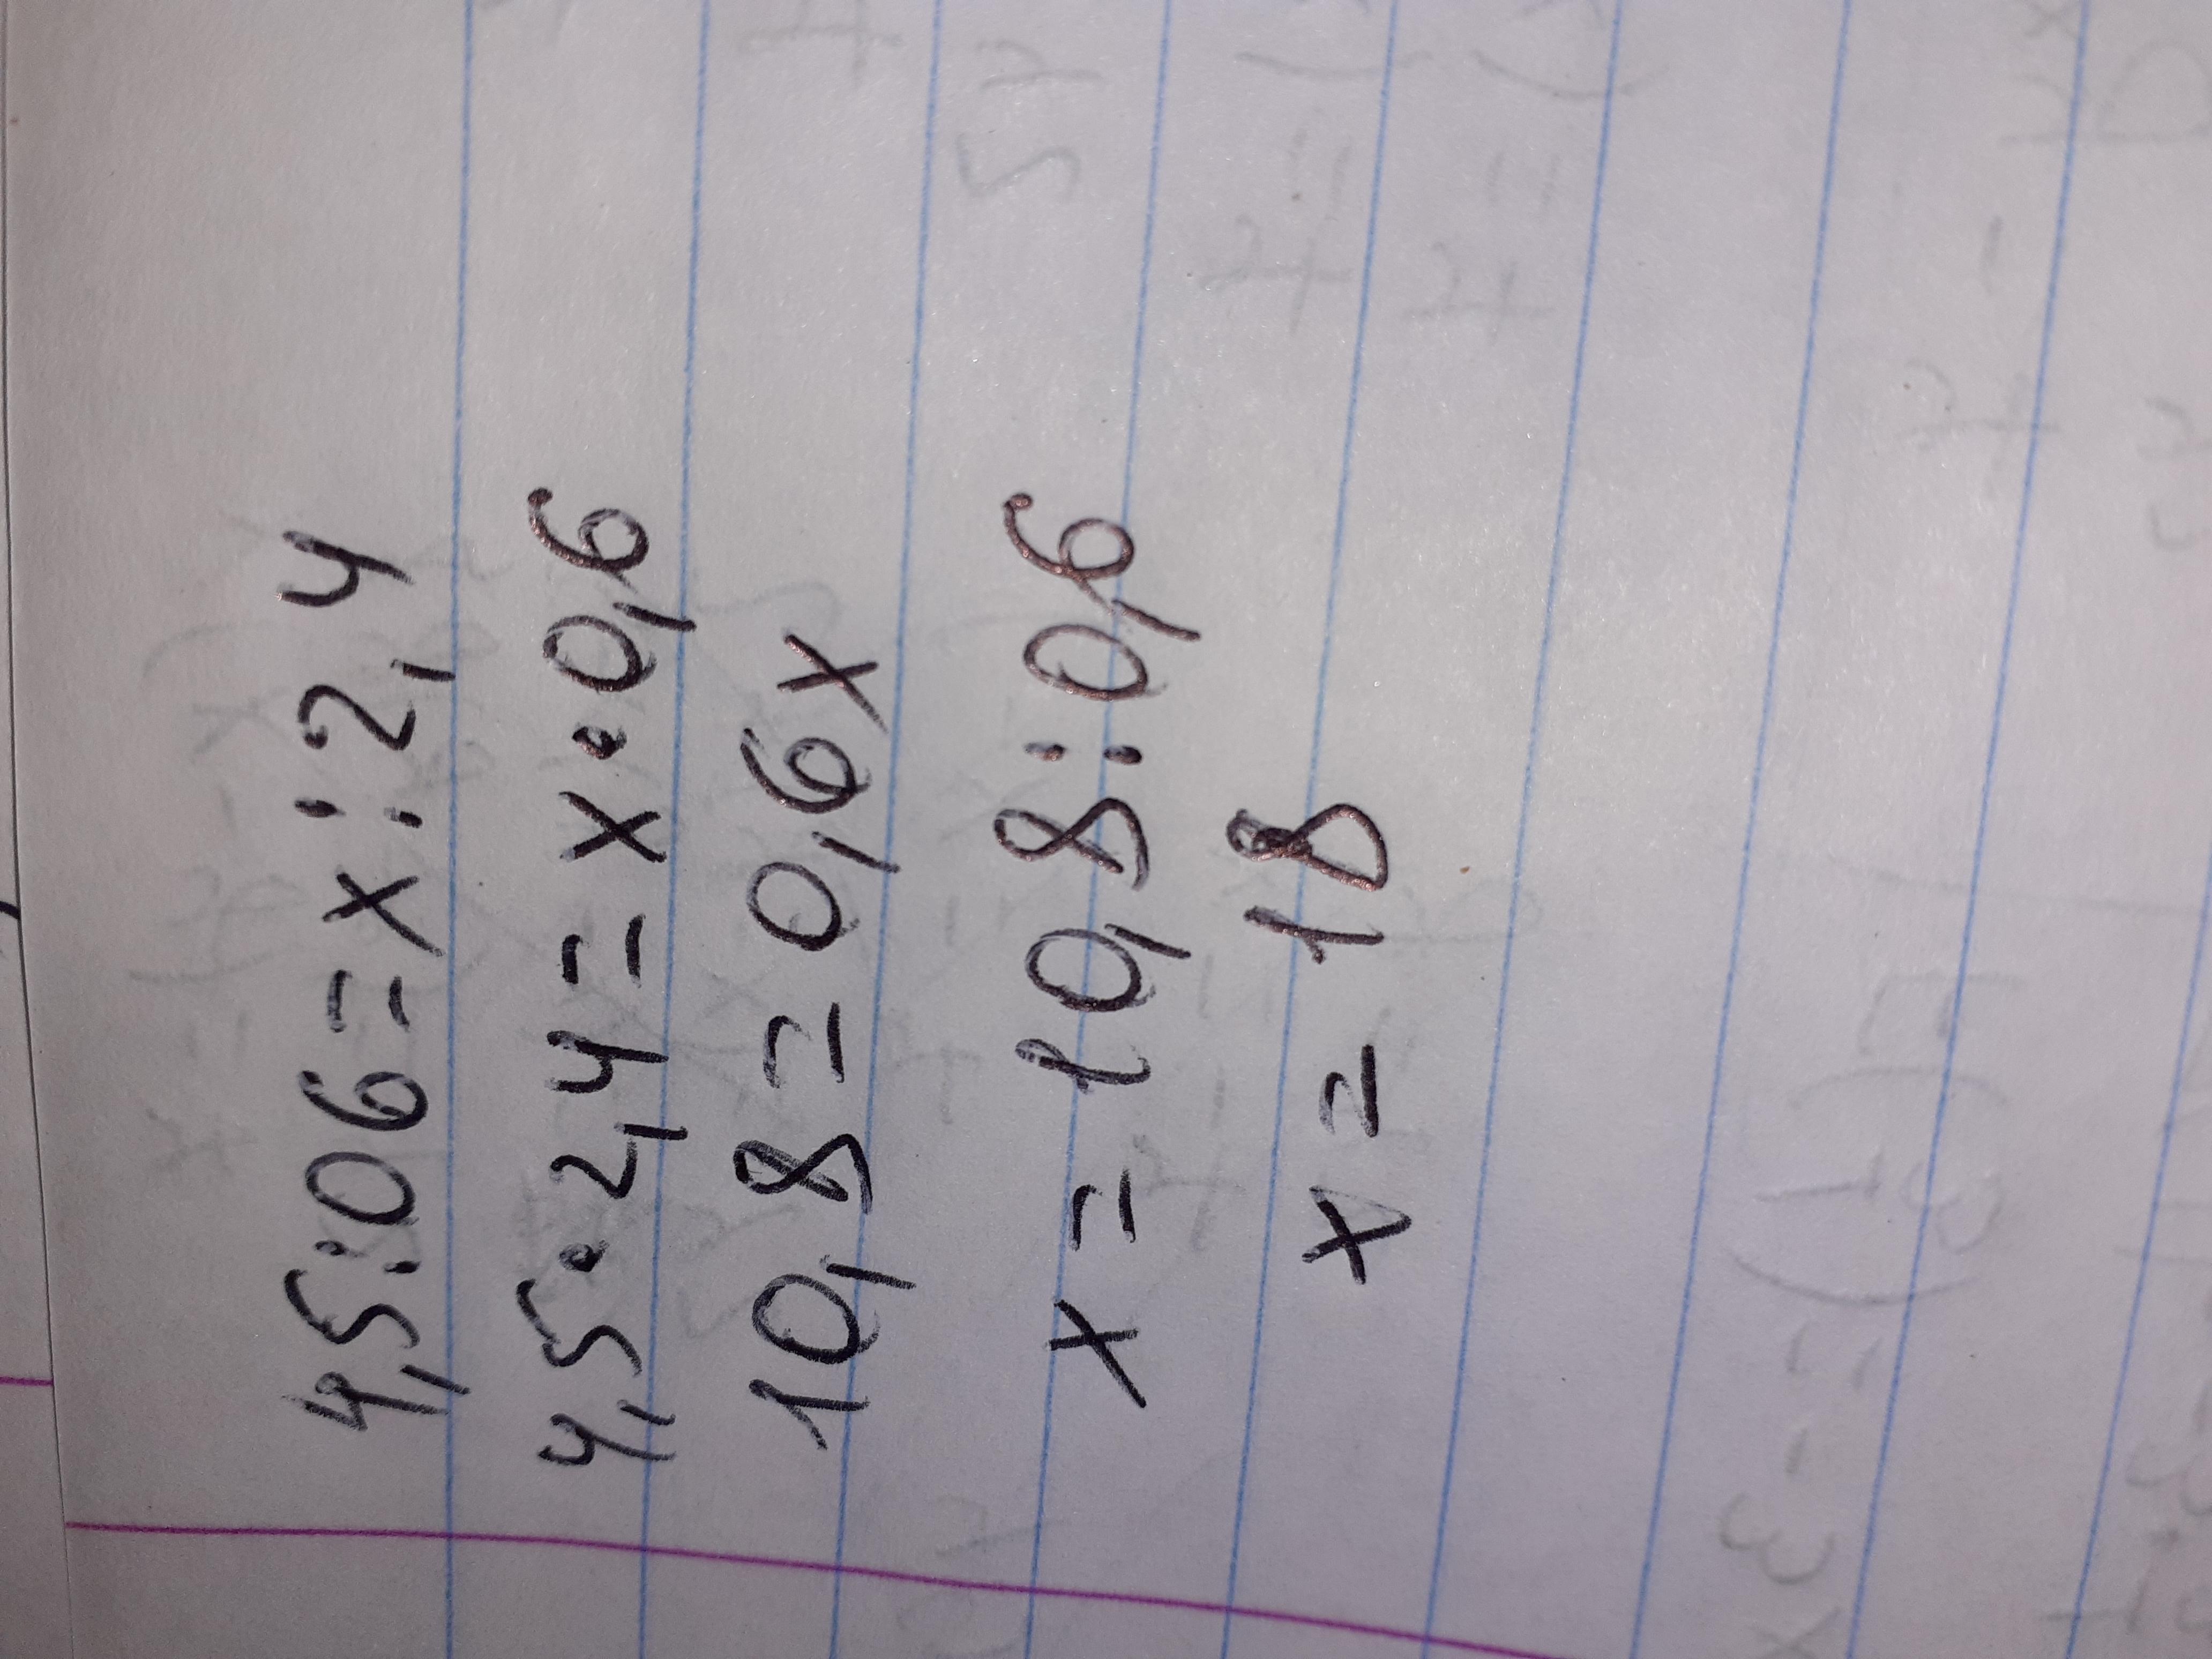 4,5:06=x:2,4
4,5·2,4=x·0,6
10,8=0,6x
x=10,8:0,6
x=18